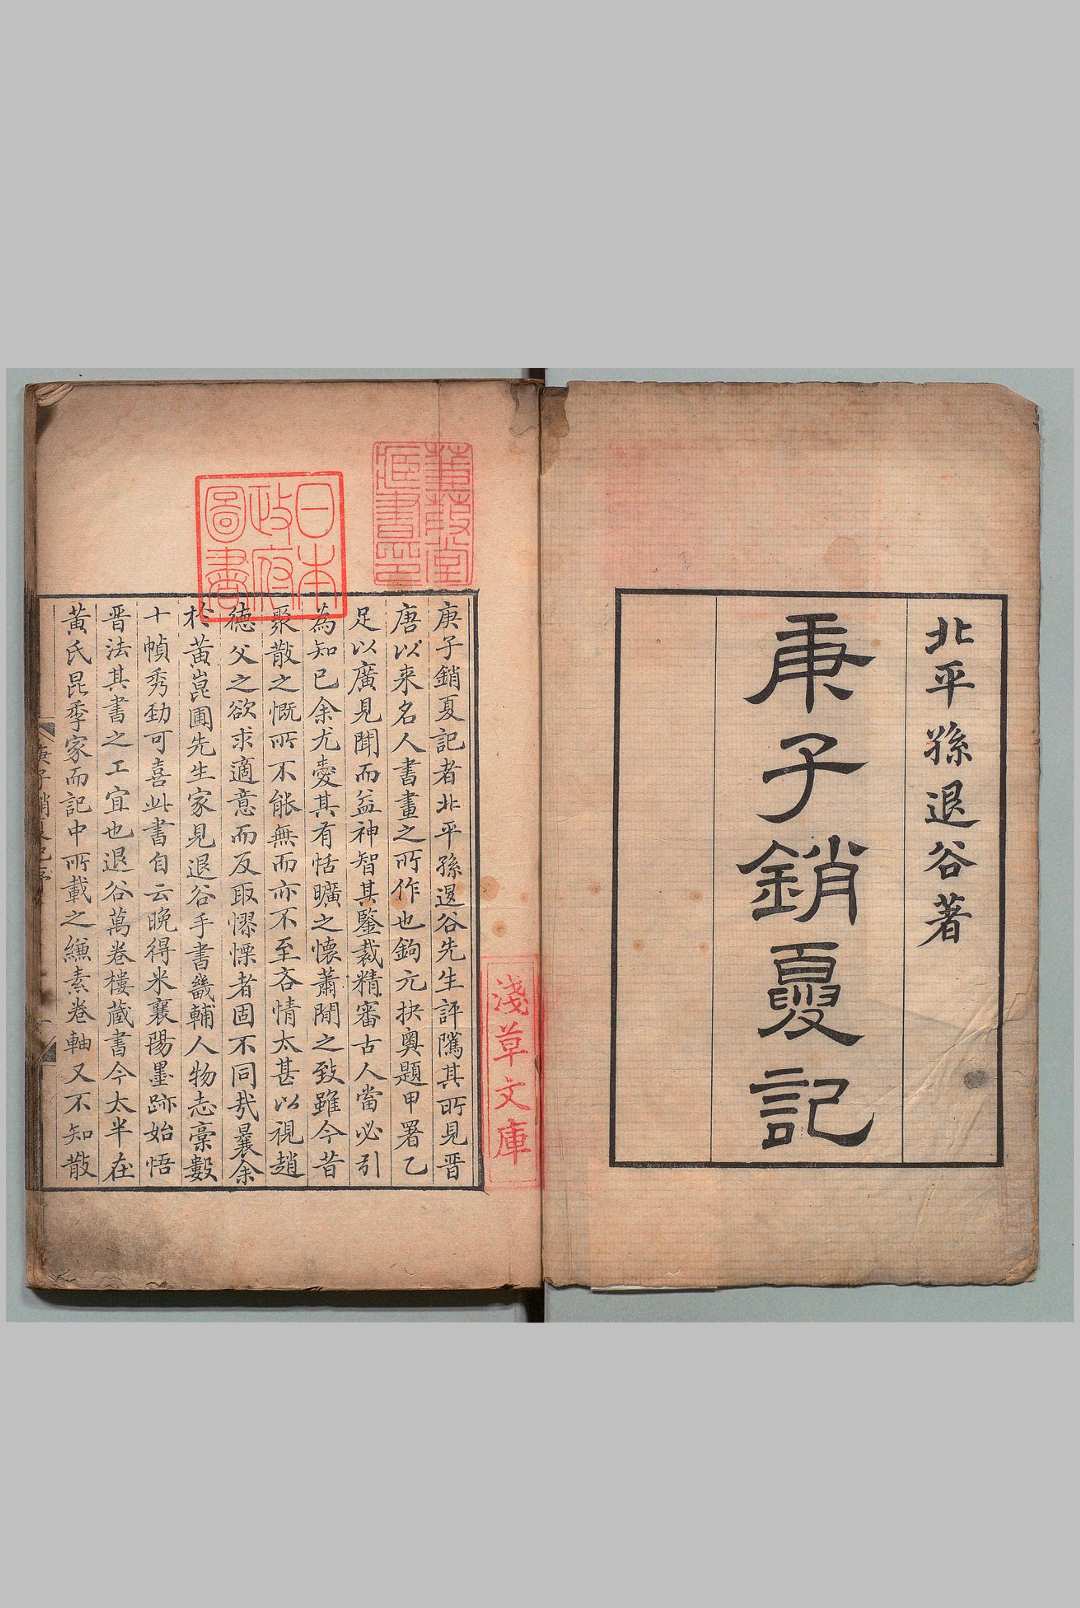 北平孫退谷著
庚子銷夏記
蒹葭堂
藏書印
日本
政府
圖書
淺草文庫
庚子銷夏記者北平孫退谷先生評隲其所見晉
唐以来名人書畫之所作也鉤元抉奧題甲署乙
足以廣見聞而益神智其鑒裁精審古人當必引
為知已余尤愛其有恬曠之懷蕭閒之致雖今昔
聚散之慨所不能無而亦不至吝情太甚以視趙
德父之欲求適意而反取憀慄者固不同㦲曩余
於黃崑圃先生家見退谷手書畿輔人物志稾數
十幀秀勁可喜此書自云晚得米襄陽墨跡始悟
晋法其書之工宜也退谷萬卷樓藏書今太半在
黃氏昆季家而記中所載之縑素卷軸又不知散
庚子銷夏記序